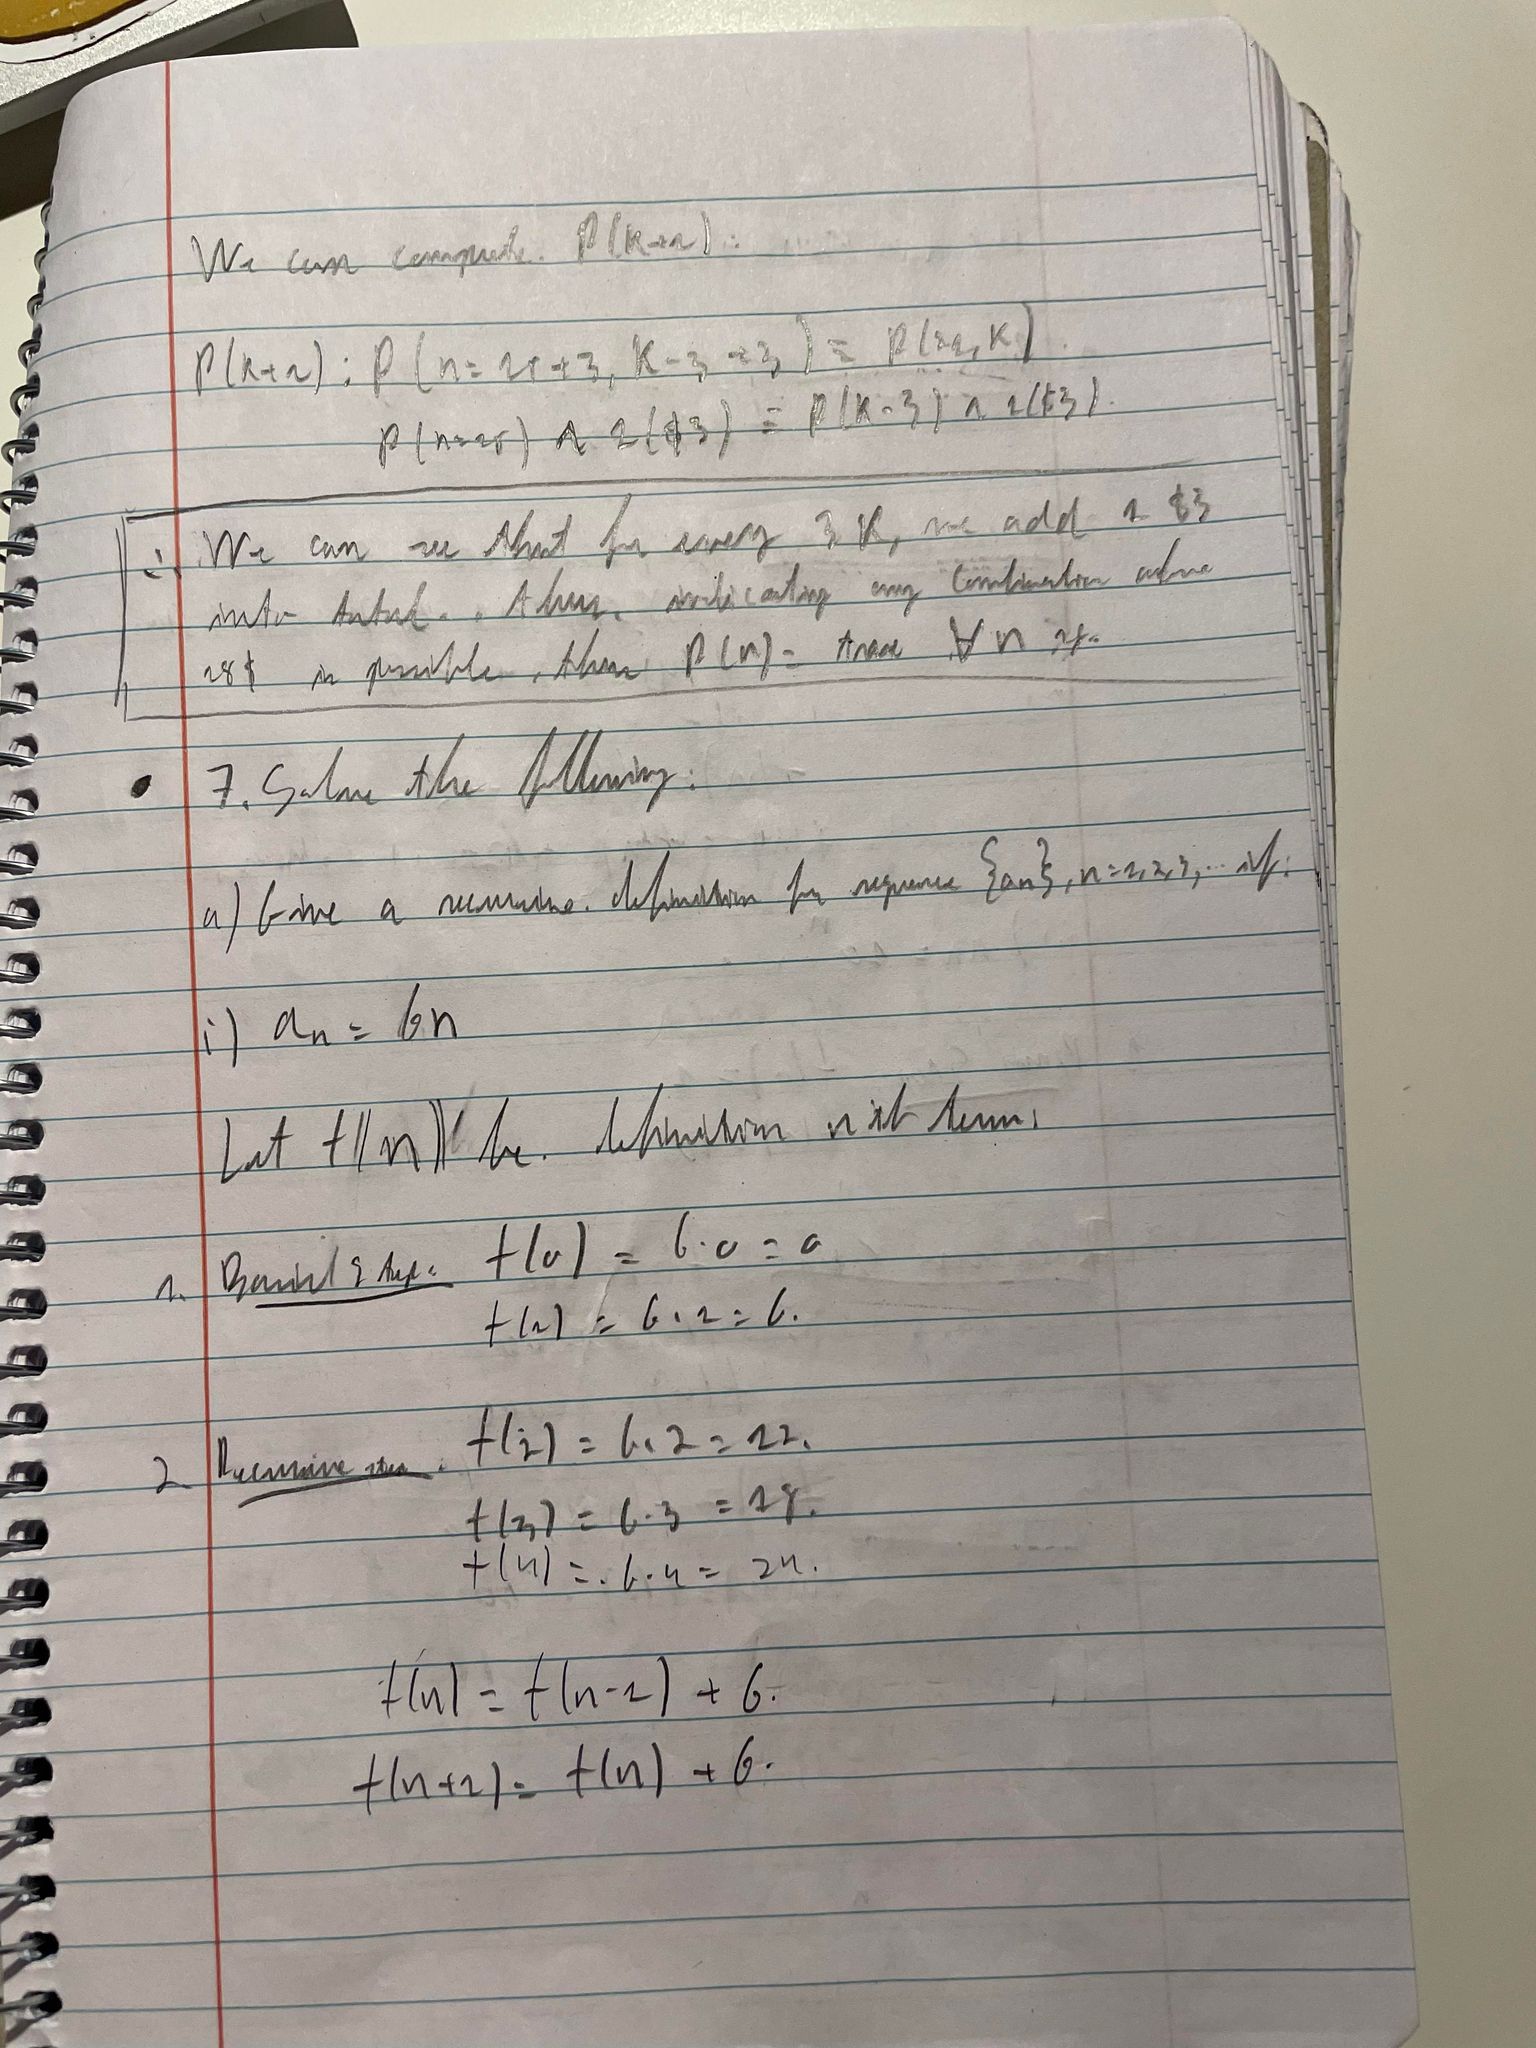 We can compute P(k+1):
P(k+1): P(n=18+3, k-3+3) = P(21, k).
P(n=18) ∧ 1($3) = P(k-3) ∧ 1($3).
∴ We can see that for every 3 k, we add 1 $3
into total. , thus, indicating any combination above
18$ is possible, thus P(n) = true ∀ n 18.
• 7. Solve the following:
a) Give a recursive definition for sequence {an}, n=1,2,3,... if:
i) an = 6n
Let f(n) be definition nth term.
1. Step: f(0) = 6·0 = 0
f(1) = 6·1 = 6.
2. Recursive step: f(2) = 6·2 = 12.
f(3) = 6·3 = 18.
f(4) = 6·4 = 24.
f(n) = f(n-1) + 6.
f(n+1) = f(n) + 6.